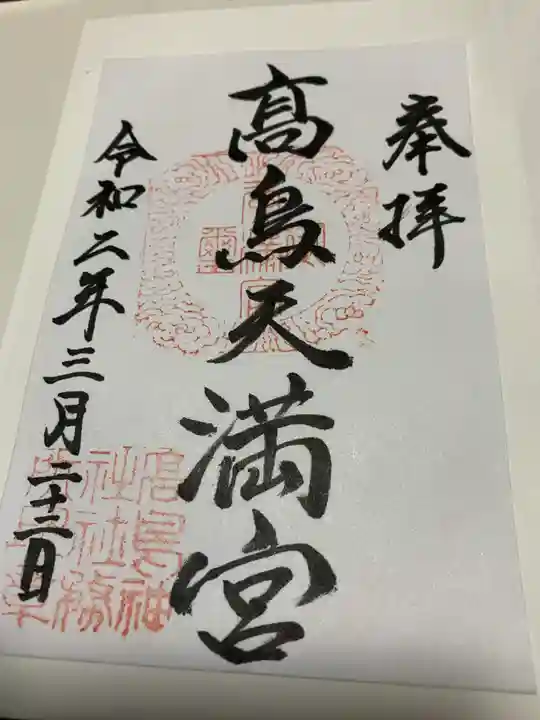 奉拝
髙鳥天満宮
令和二年三月二十三日